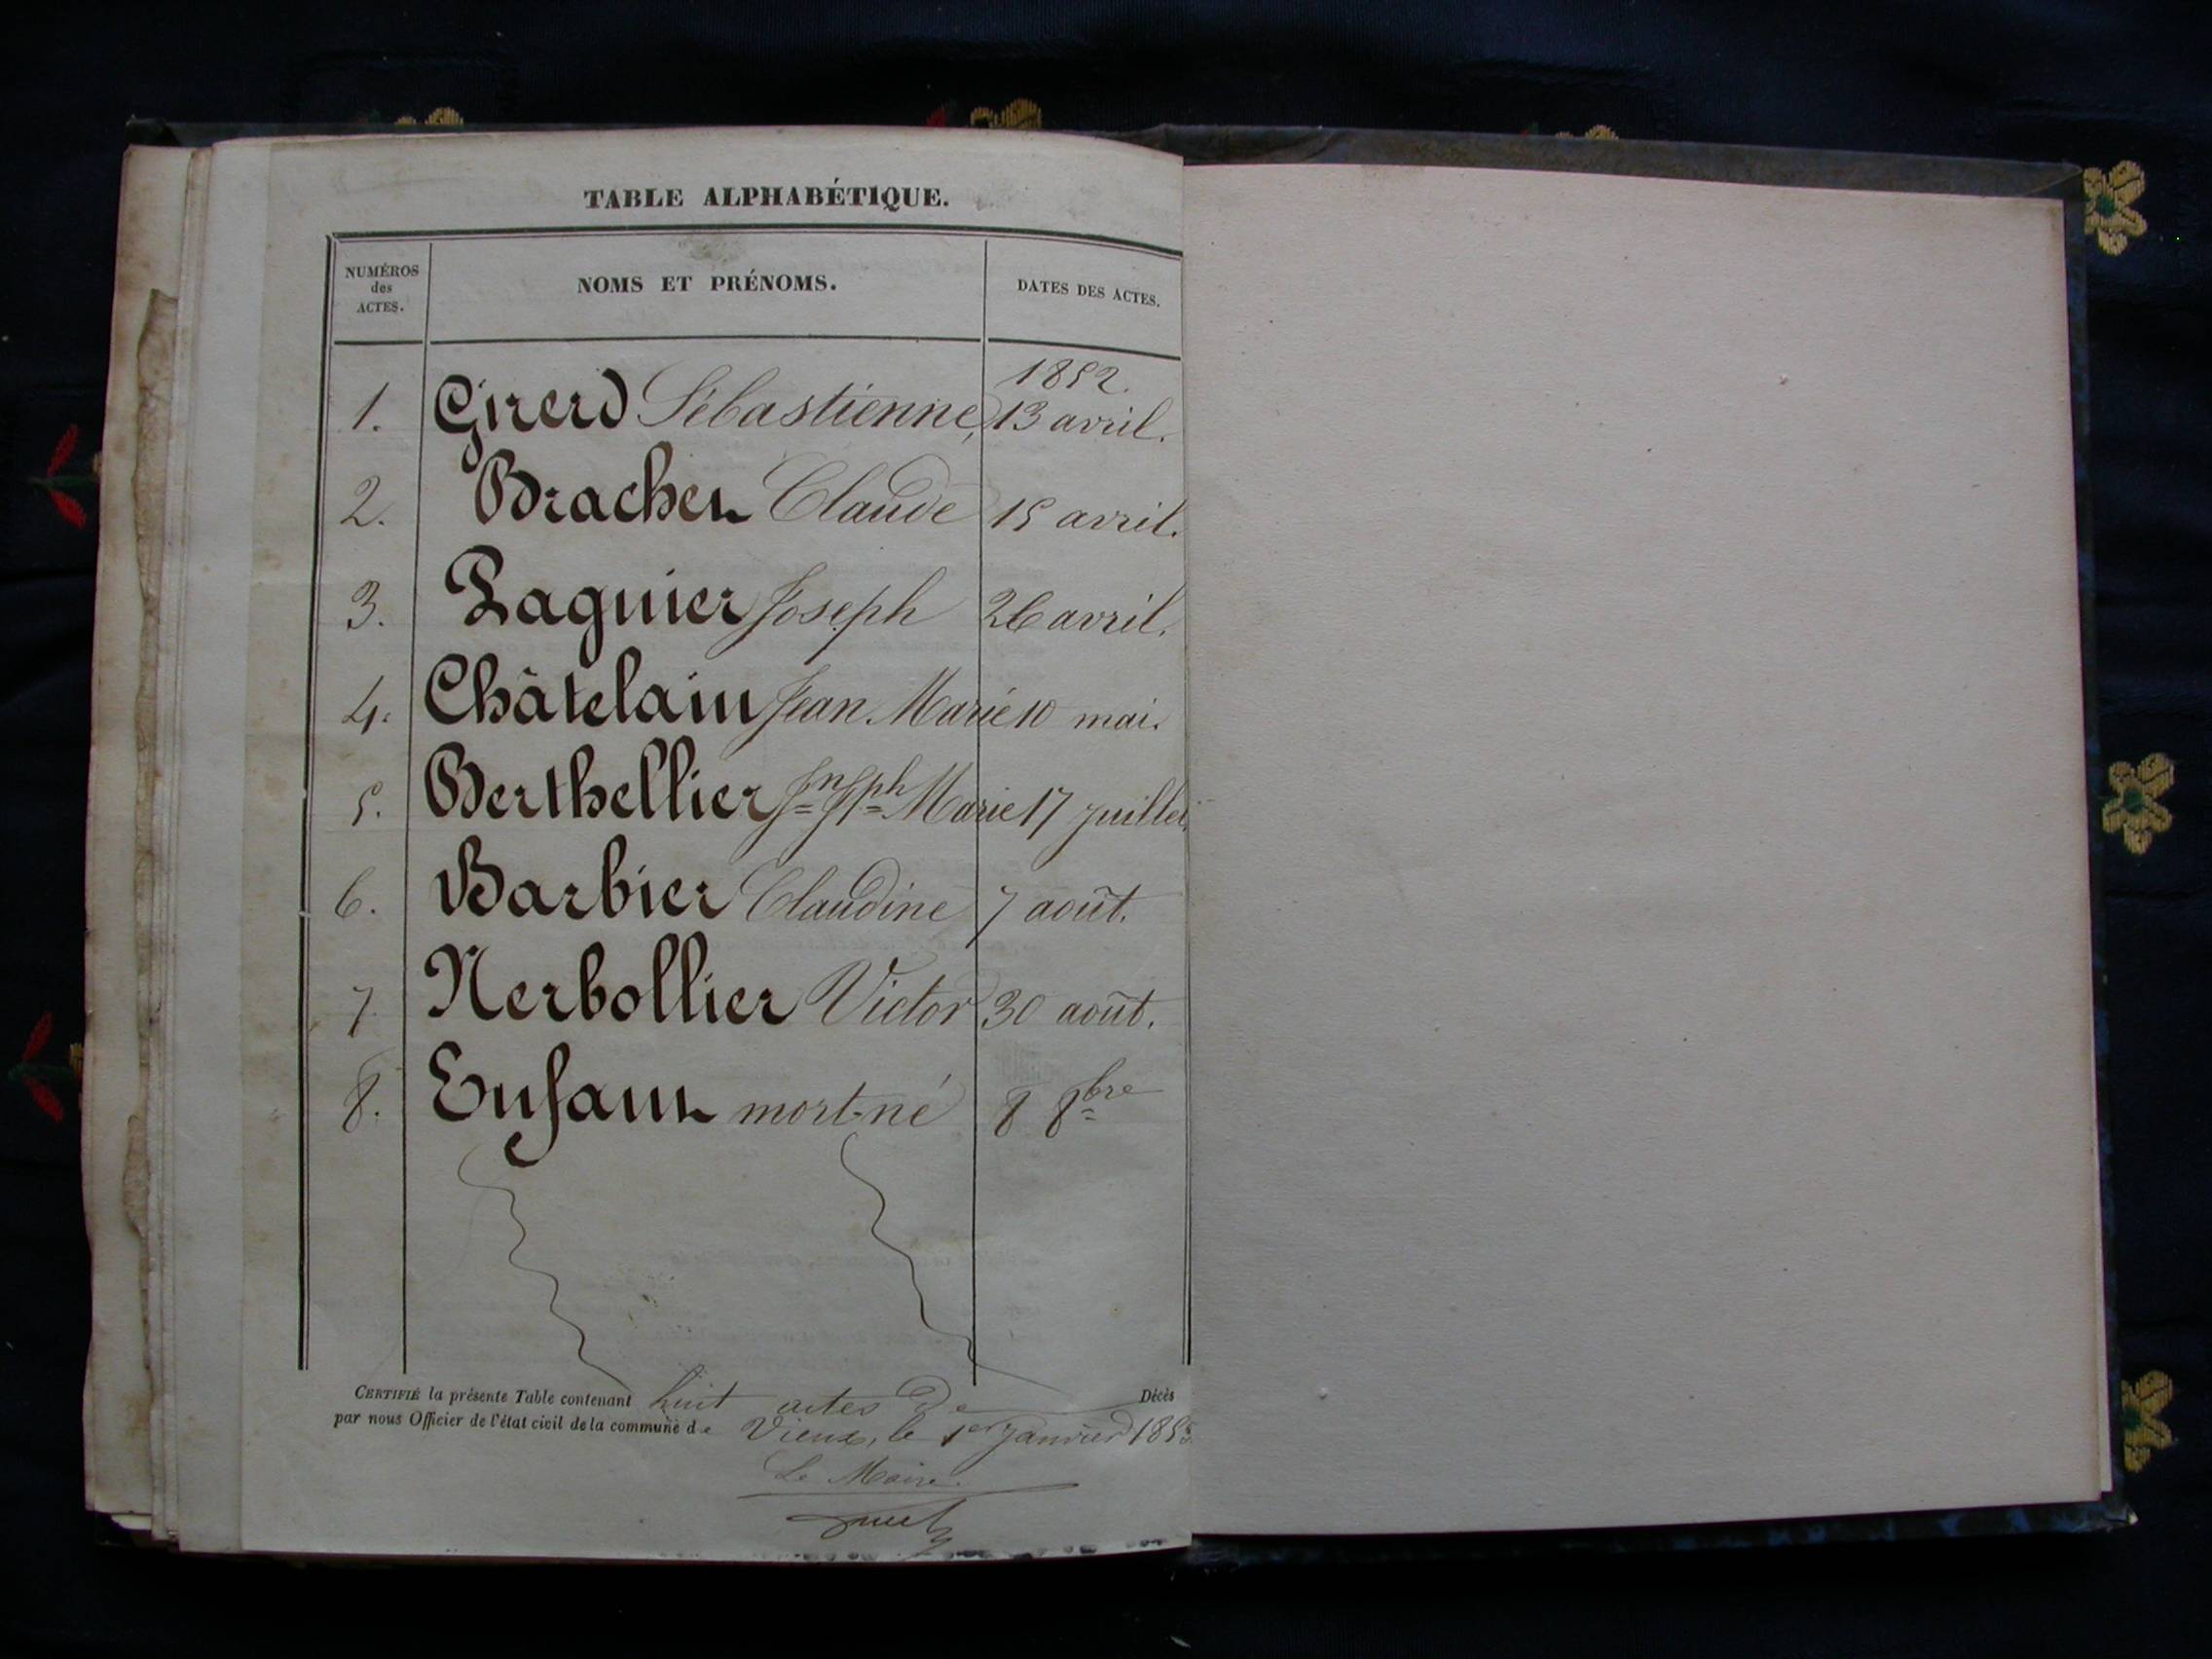 TABLE ALPHABÉTIQUE.
NUMÉROS des ACTES. NOMS ET PRÉNOMS. DATES DES ACTES.
1852.
1. Girerd Sébastienne, 13 avril.
2. Brachet Claude 15 avril.
3. Pagnier Joseph 26 avril.
4. Châtelain Jean Marie 10 mai.
5. Berthellier Jn Jph Marie 17 juillet
6. Barbier Claudine 7 août.
7. Nerbollier Victor 30 août.
8. Enfant mort-né 8 8bre
CERTIFIÉ la présente Table contenant huit actes de Décès
par nous Officier de l'état civil de la commune de Vieux, le 1er Janvier 185
Le Maire.